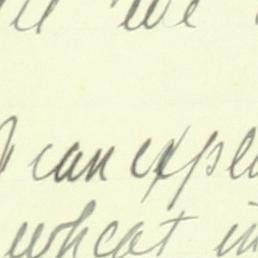 we
I can expla
wheat in